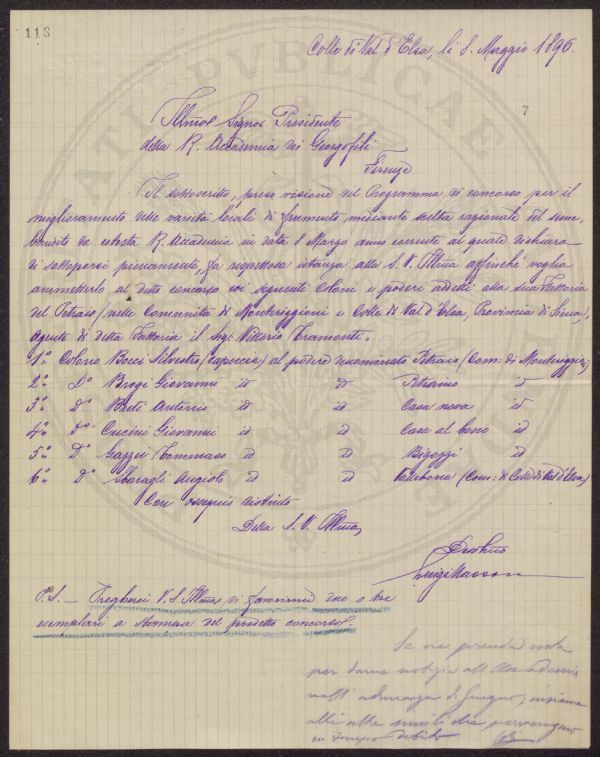 118
Colle di Val d'Elsa, li 8. Maggio 1896.
7
Illmo Signor Presidente
della R. Accademia dei Georgofili
Firenze
Il sottoscritto, presa visione del Programma di concorso per il
miglioramento delle varietà locali di frumento mediante scelta razionale del seme,
bandito da cotesta R. Accademia in data 8 Marzo anno corrente al quale dichiara
di sottoporsi pienamente, fa rispettosa istanza alla S. V. Illma affinchè voglia
ammetterlo al detto concorso coi seguenti Coloni e poderi addetti alla sua Fattoria
del Petraio (nelle Comunità di Monteriggioni e Colle di Val d'Elsa, Provincia di Siena),
Agente di detta Fattoria il Sigr Vittorio Tramonti.
1º Colono Bocci Silvestro (capoccia) al podere denominato Petraio (Com: di Monteriggioni)
2º Dº Brogi Giovanni id id id
3º Dº Buti Antonio id id Casa nova id
4º Dº Cucini Giovanni id id Casa al bosco id
5º Dº Gazzei Tommaso id id Bigozzi id
6º Dº Sbaragli Angiolo id id (Com: di Colle di Val d'Elsa)
Con ossequio distinto
Della S. V. Illma
Devotmo
Luigi Masson
P.S. — Pregherei V. S. Illma di favorirmi due o tre
esemplari a stampa del predetto concorso.
Se ne prenda nota
per darne notizia all'Accademia
nell'adunanza di Giugno, insieme
alle altre simili che perverranno
in tempo debito